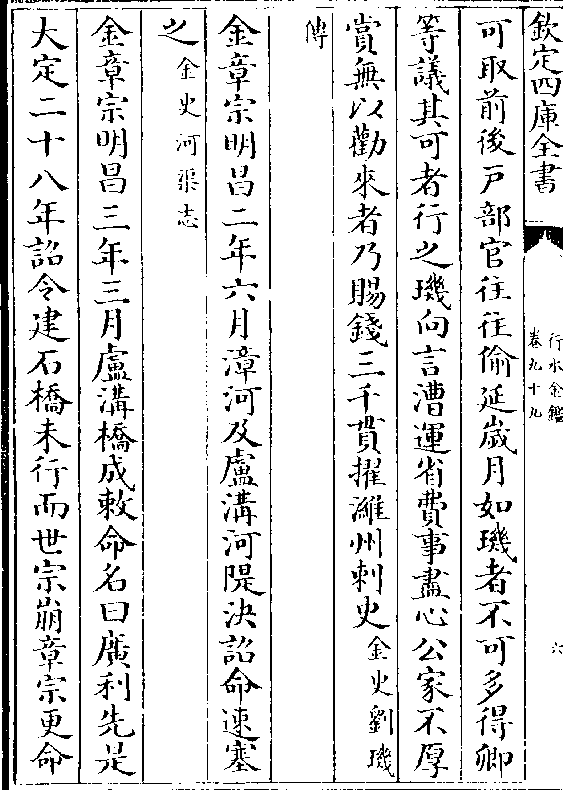 欽定四庫全書
行水金鑑
卷九十九
六
可取前後戸部官往往偷延歲月如璣者不可多得卿
等議其可者行之璣向言漕運省費事盡心公家不厚
賞無以勸來者乃賜錢三千貫擢濰州刺史金史劉璣
傳
金章宗明昌二年六月漳河及盧溝河隄決詔命速塞
之金史河渠志
金章宗明昌三年三月盧溝橋成敕命名曰廣利先是
大定二十八年詔令建石橋未行而世宗崩章宗更命